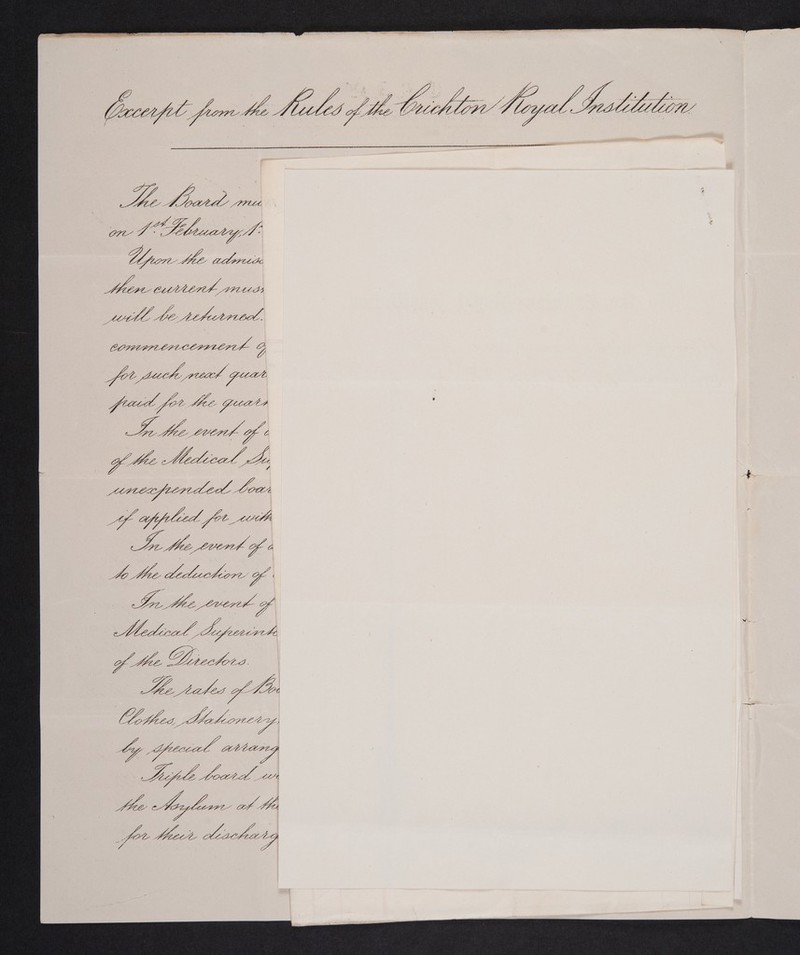 Excerpt from the Rules of the Crichton Royal Institution.
The Board
on 1st February, 1
Upon the admiss
then current mus
will be returned.
commencement of
for such next quar
paid for the quar
In the event of
of the Medical Su
unexpended boar
if applied for with
In the event of a
to the deduction of
In the event of
Medical Superinte
of the Directors.
The rates of Bo
Clothes, Stationery
by special arrang
Triple board
the Asylum at the
for their discharg